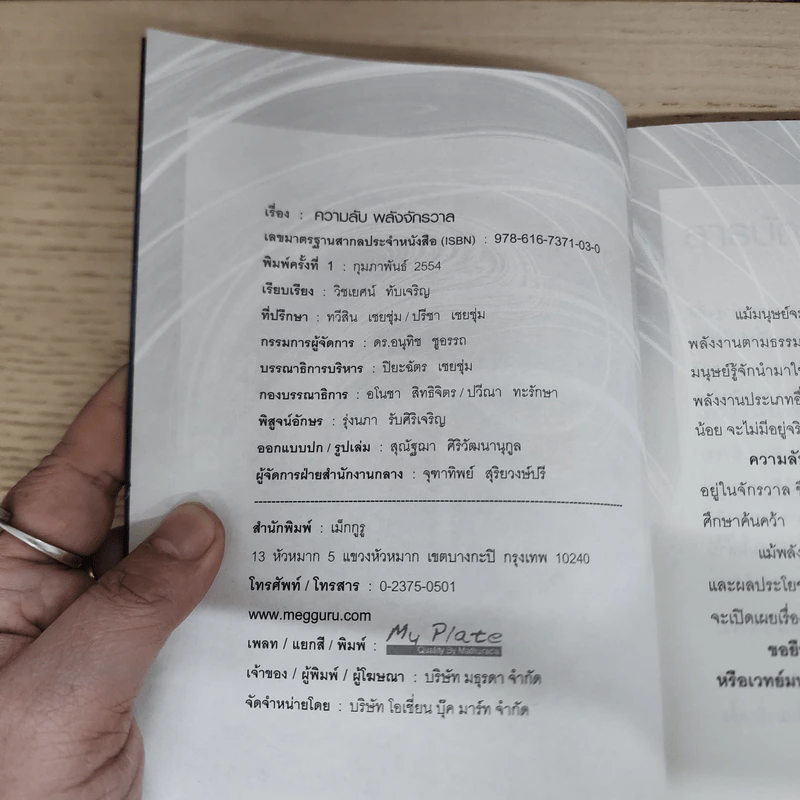 เรื่อง : ความลับ พลังจักรวาล
เลขมาตรฐานสากลประจำหนังสือ (ISBN) : 978-616-7371-03-0
พิมพ์ครั้งที่ 1 : กุมภาพันธ์ 2554
เรียบเรียง : วิชเยศน์ ทับเจริญ
ที่ปรึกษา : ทวีสิน เชยชุ่ม / ปรีชา เชยชุ่ม
กรรมการผู้จัดการ : ดร.อนุทิช ชูอรรถ
บรรณาธิการบริหาร : ปิยะฉัตร เชยชุ่ม
กองบรรณาธิการ : อโนชา สิทธิจิตร / ปวีณา ทะรักษา
พิสูจน์อักษร : รุ่งนภา รับศิริเจริญ
ออกแบบปก / รูปเล่ม : สุณัฐฌา ศิริวัฒนานุกูล
ผู้จัดการฝ่ายสำนักงานกลาง : จุฑาทิพย์ สุริยวงษ์ปรี
สำนักพิมพ์ : เม็กกูรู
13 หัวหมาก 5 แขวงหัวหมาก เขตบางกะปิ กรุงเทพ 10240
โทรศัพท์ / โทรสาร : 0-2375-0501
www.megguru.com
เพลท / แยกสี / พิมพ์ : My Plate
Quality By Mathurada
เจ้าของ / ผู้พิมพ์ / ผู้โฆษณา : บริษัท มธุรดา จำกัด
จัดจำหน่ายโดย : บริษัท โอเชี่ยน บุ๊ค มาร์ท จำกัด
แม้มนุษย์จะ
พลังงานตามธรรม
มนุษย์รู้จักนำมาใช
พลังงานประเภทอื่
น้อย จะไม่มีอยู่จริ
ความลับ
อยู่ในจักรวาล
ศึกษาค้นคว้า
แม้พลัง
และผลประโยช
จะเปิดเผยเรื่อง
ขอยืน
หรือเวทย์มน